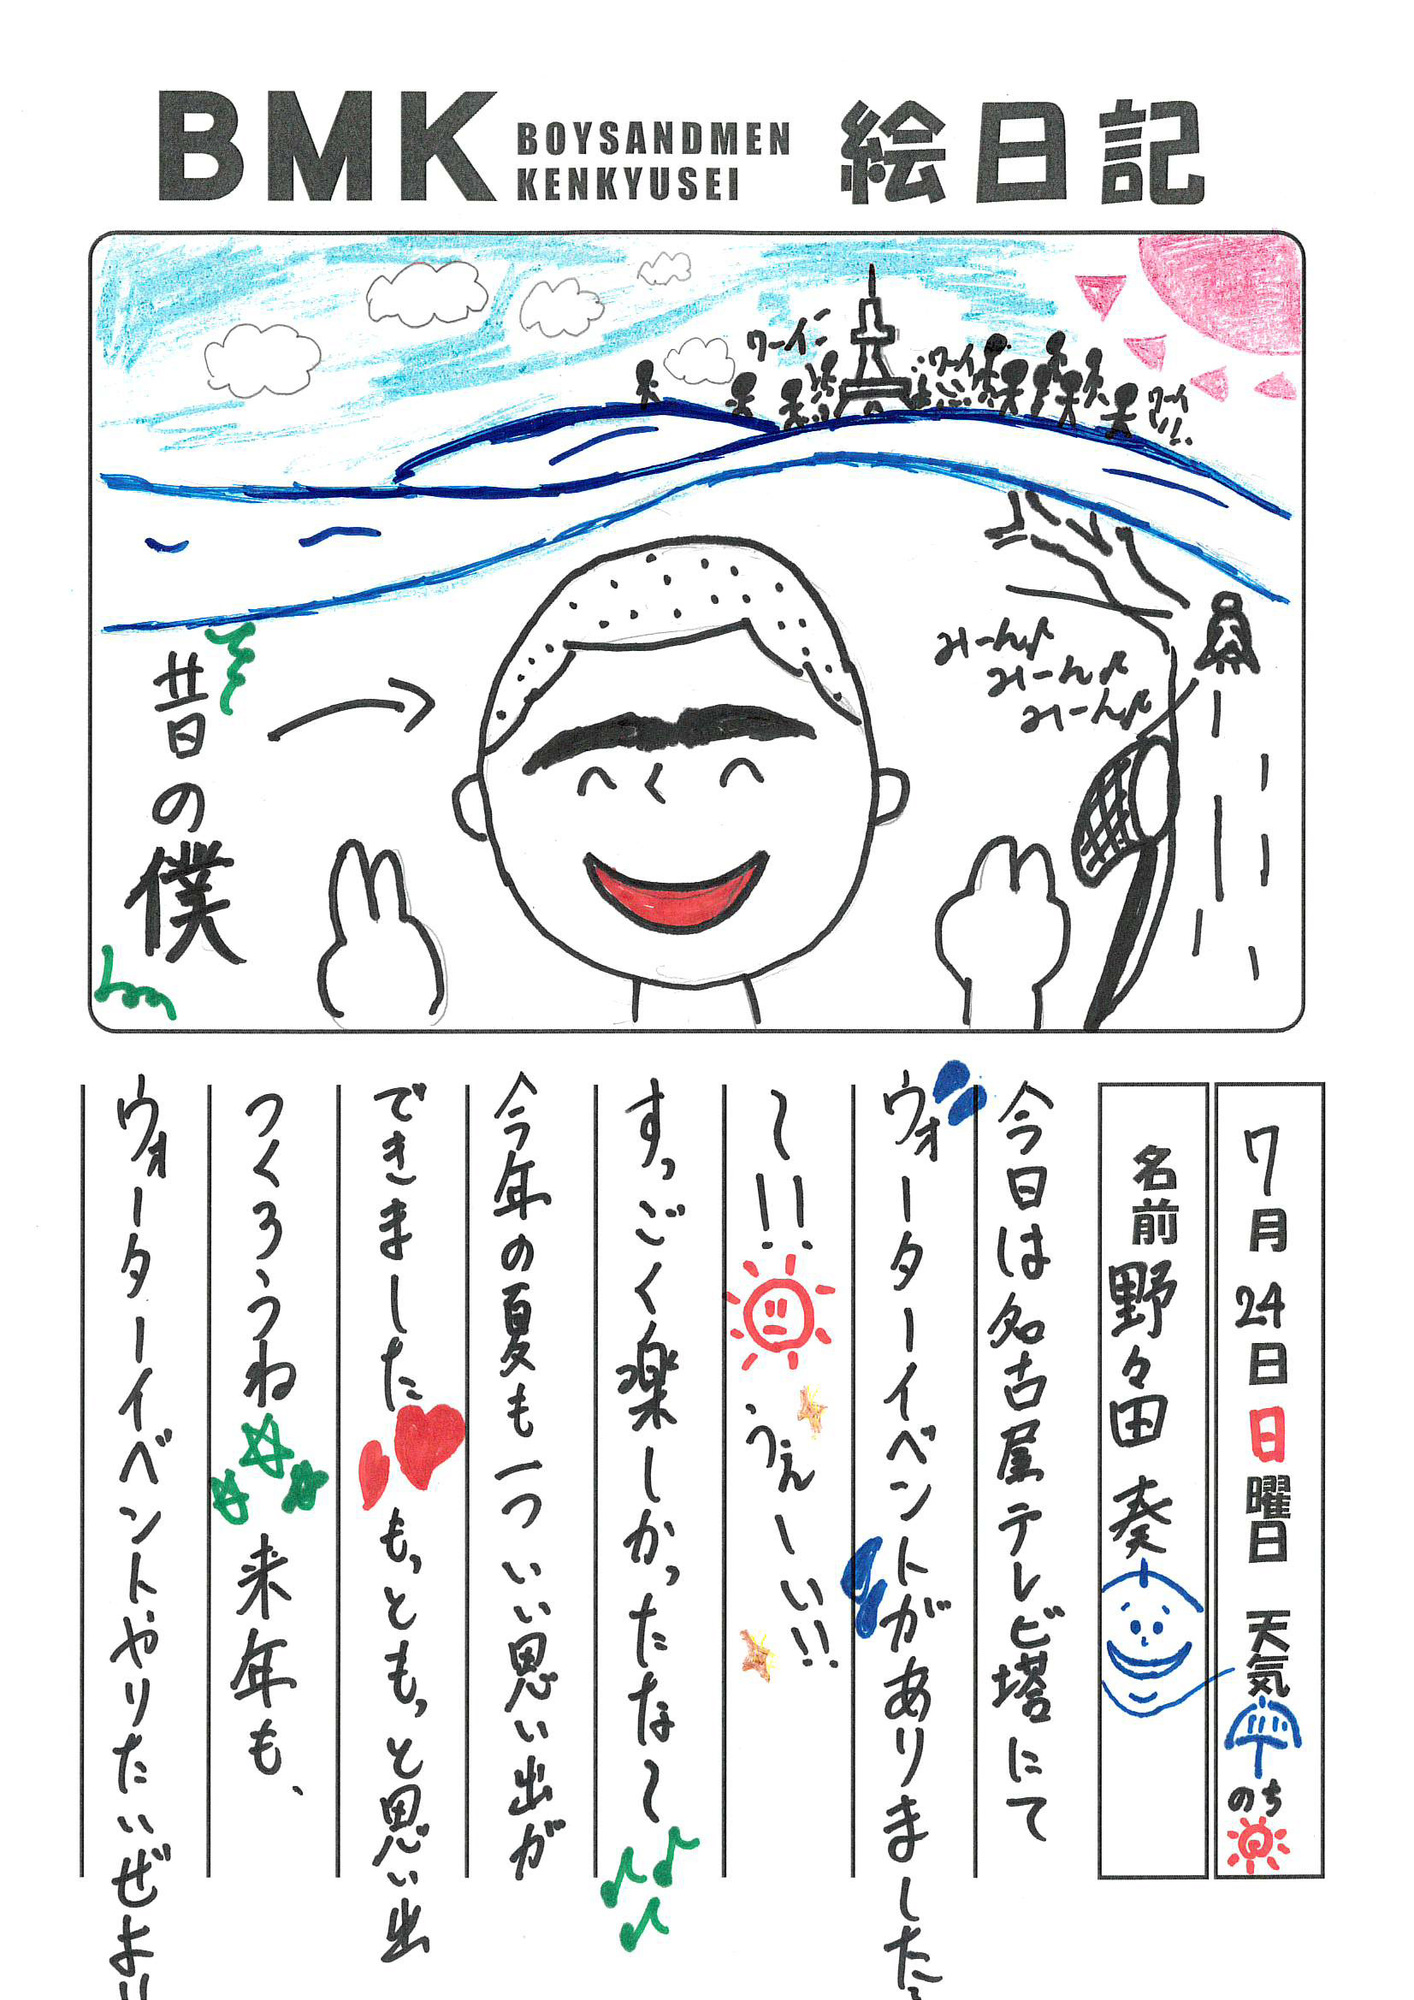 BMK BOYSANDMEN KENKYUSEI 絵日記
ワーイ
ワーイ
ワーイ
みーんみーんみーん
昔の僕
7月24日 日曜日 天気 のち
名前 野々田 奏
今日は名古屋テレビ塔にて
ウォーターイベントがありました
〜!! うぇーい!!
すっごく楽しかったな〜
今年の夏も一ついい思い出が
できました もっともっと思い出
つくろうね 来年も、
ウォーターイベントやりたいぜよ!!